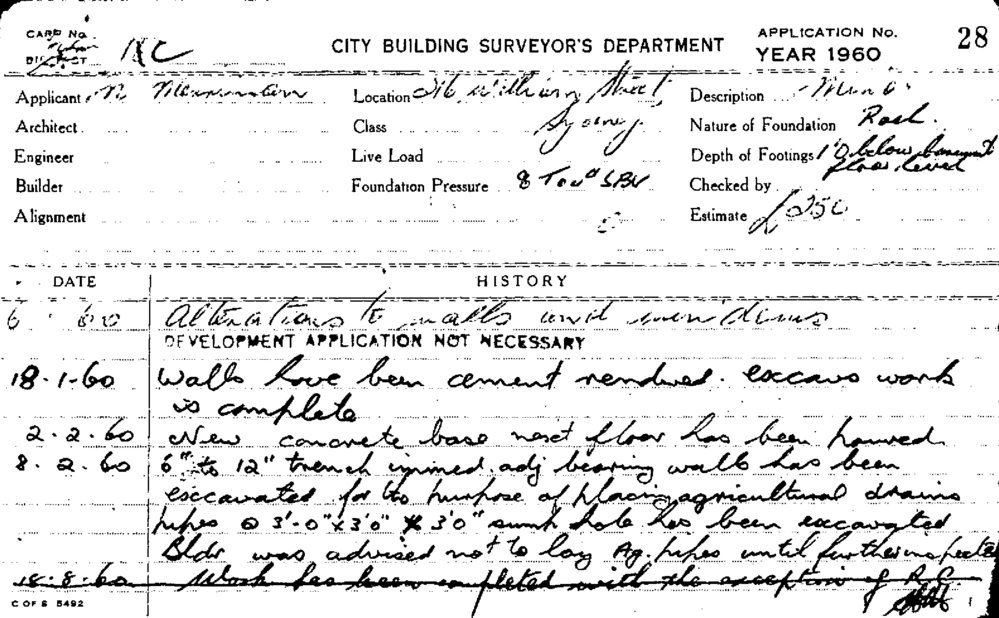 CARD No.
DISTRICT
CITY BUILDING SURVEYOR'S DEPARTMENT
APPLICATION No. 28
YEAR 1960
Applicant
Location William Street
Sydney
Description
Architect
Class
Nature of Foundation Rock.
Engineer
Live Load
Depth of Footings 1'0 below basement
floor level
Builder
Foundation Pressure 8
Checked by
Alignment
Estimate £250
DATE HISTORY
6 60 Alterations to walls and windows
DEVELOPMENT APPLICATION NOT NECESSARY
18-1-60 Walls have been cement rendered. excavs work
is complete
2.2.60 New concrete base next floor has been poured
8.2.60 6" to 12" trench adj bearing wall has been
excavated for the purpose of placing agricultural drains
pipes @ 3'-0" x 3'0" x 3'0" sump hole has been excavated
Bldr was advised not to lay Ag. pipes until further inspected
18-8-60 Work has been completed with the exception of R.C.
C OF S 5492